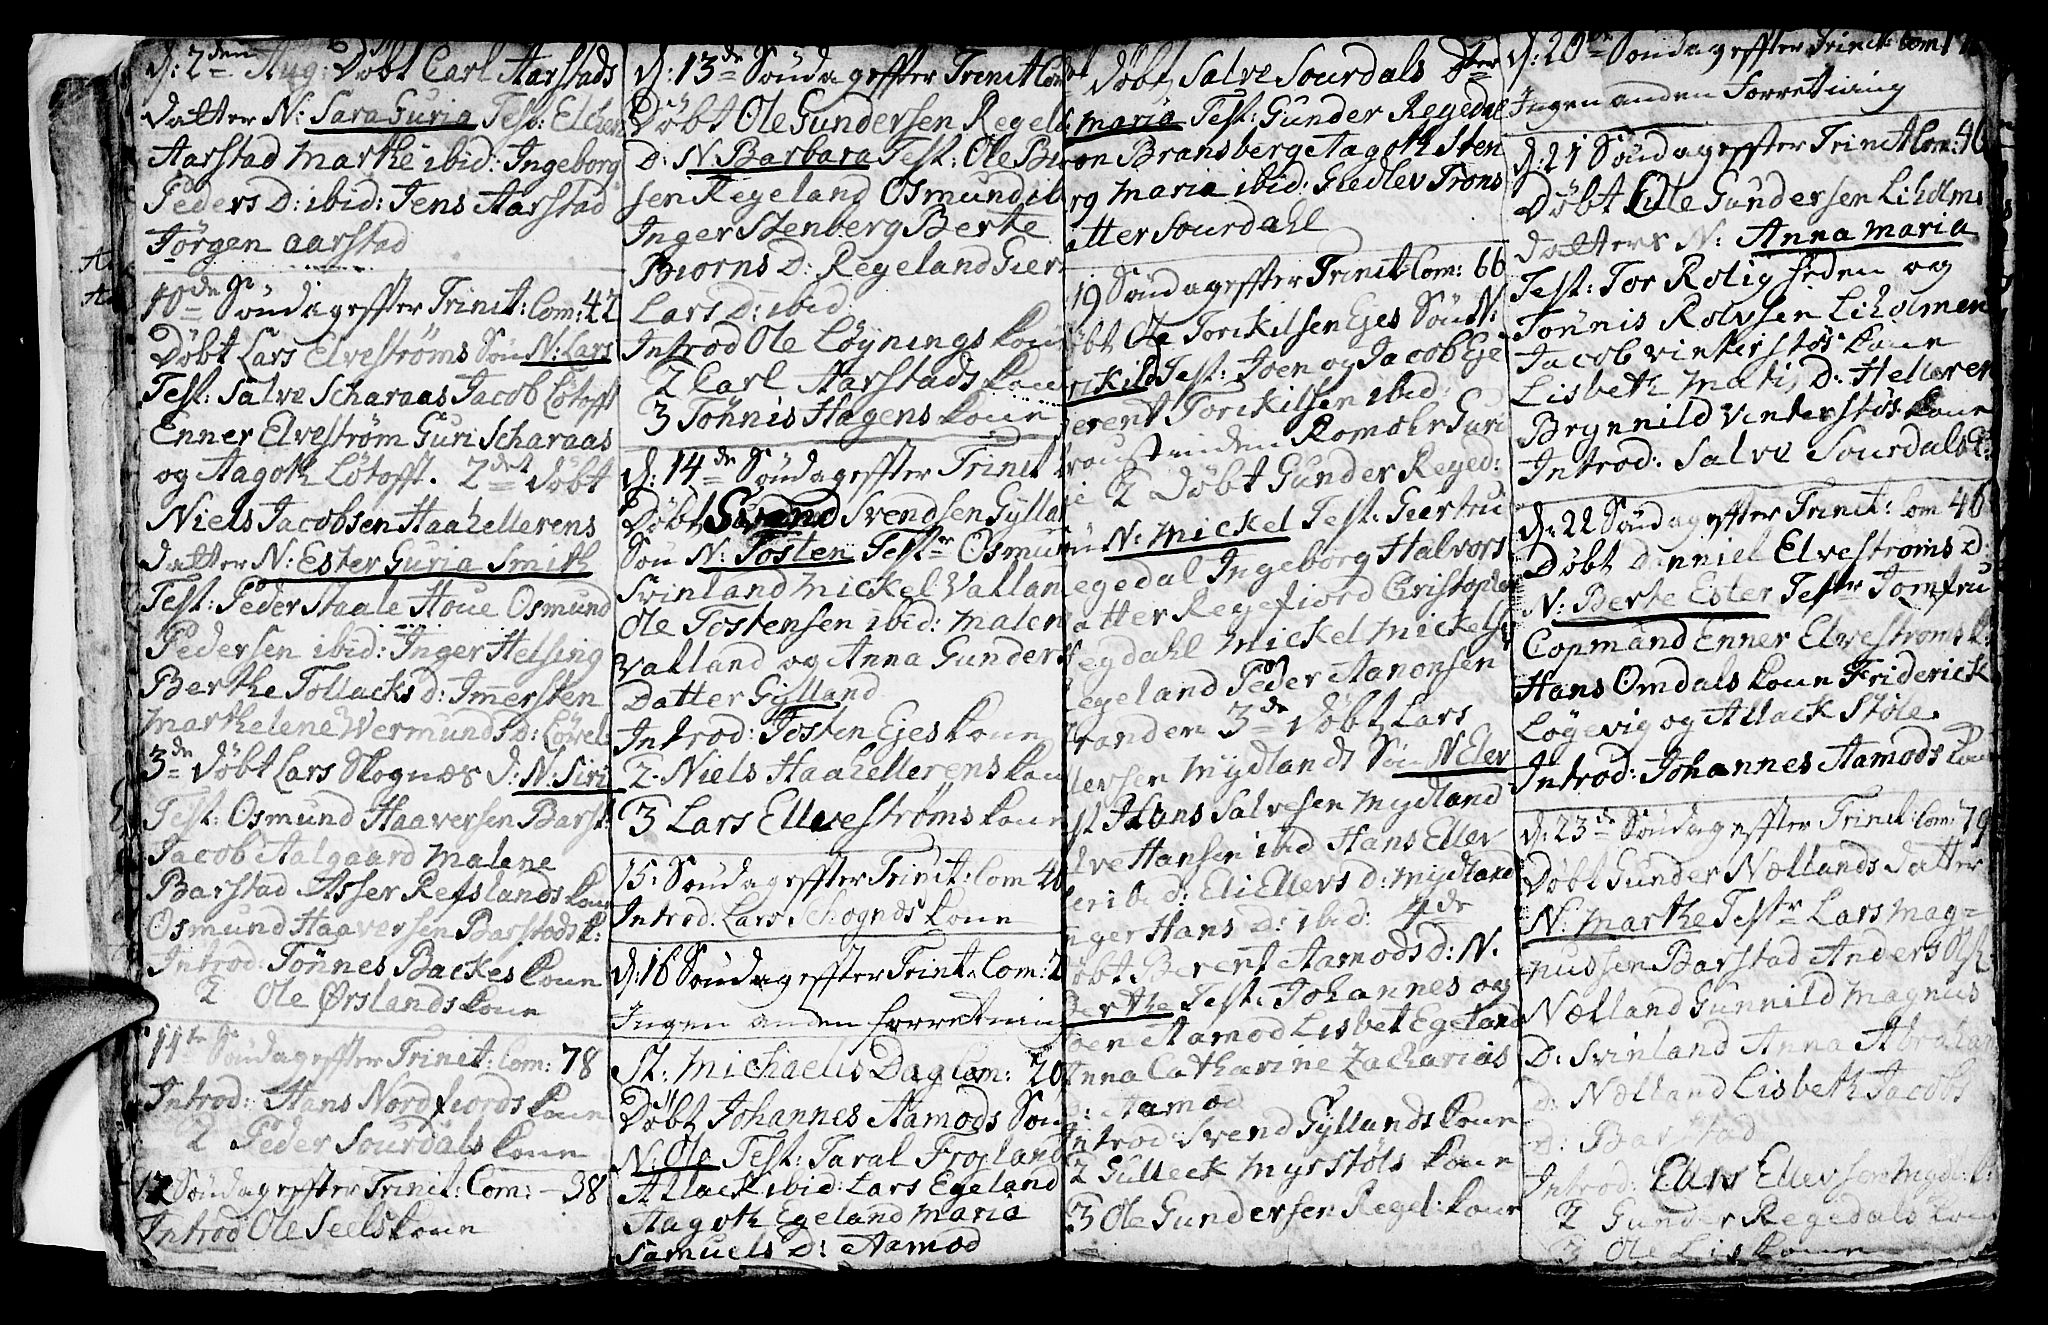 d: 2den Aug: Døbt Carl Aarstads
datter N: Sara Guria Test: Elchen
Aarstad Marthe ibid: Ingeborg
Peders D: ibid: Jens Aarstad
Jørgen Aarstad
10de Søndag effter Trinit: Com: 42
Døbt Lars Elvestrøms Søn N: Lars
Test: Salve Scharaas Jacob Løtofft
Enner Elvestrøm Guri Scharaas
og Aagoth Løtofft. 2det Døbt
Niels Jacobsen Haahellerens
datter N: Ester Guria Smith
Test: Peder Staale Houe Osmund
Pedersen ibid: Inger Helsing
Berthe Tollacks d: Immersten
Marthelene Wermunds d:
3de Døbt Lars Skognæs d: N: Siri
Test: Osmund Haaversen Barst:
Jacob Aalgaard Malene
Barstad Asser Refslands kone
Osmund Haaversen Barstads k:
Introd: Tønnes Backes kone
2 Ole Ørslands kone
11te Søndag effter Trinit: Com: 78
Introd: Hans Nordfiords kone
2 Peder Sourdals kone
12 Søndag effter Trinit: Com: 38
Introd Ole Seels kone
d: 13de Søndag effter Trinit Com
Døbt Ole Gundersen Regel
D: N: Barbara Test: Ole Bior
sen Regeland Osmund ib
Inger Stenberg Berte
Biorns D: Regeland Gier
Lars D: ibid
Introd Ole Løynings kone
2 Carl Aarstads kone
3 Tønnis Hagens kone
d: 14de Søndag effter Trinit
Døbt Svend Svendsen Gyllan
Søn N: Tosten Test Osmun
Svinland Mickel Valland
Ole Tostensen ibid: Malen
Valland og Anna Gunders
Datter Gylland
Introd: Tosten Ejes kone
2. Niels Haahellerens kon
3 Lars Ellvestrøms kone
15: Søndag effter Trinit: Com 40
Introd: Lars Schognæs kone
d: 16 Søndag effter Trinit: Com: 2
Ingen anden forretning
St: Michaelis Dag Com: 20
Døbt Johannes Aamods Søn
N: Ole Test: Taral Frøeland
Atlack ibid: Lars Egeland
Aagoth Egeland Maria
Samuels D: Aamod
Døbt Salve Sourdals Dtter
Maria Test: Gunder Regedal
on Bransberg Aagoth Sten
rg Maria ibid: Giedlev Trons
atter Sourdahl
19 Søndag effter Trinit: Com: 66
øbt Ole Torkilsen Ejes Søn N:
orkild Test: Joen og Jacob Eje
erent Torkilsen ibid:
roustinden Romohr Guri
2 Døbt Gunder Reged:
N: Mickel Test: Giertru
egedal Ingeborg Halvors
atter Regefiord Christopher
egdahl Mickel Mickels
egeland Peder Aanonsen
randen 3de Døbt Lars
lersen Mydlands Søn N Elev
st Hans Salvesen Mydland
alve Hansen ibid Hans Eller
ibid: Eli Ellevs d: Mydland
nger Hans D: ibid: 4de
øbt Berent Aamods d: N.
Berthe Test: Johannes og
oen Aamod Lisbet Egeland
Anna Catharine Zacharias
Aamod
Introd Svend Gyllands kone
2 Gulleck Myrstøls kone
3 Ole Gundersen Regel: kone
d: 20de Søndag effter Trinit: Com: 1
Ingen anden forretning
d: 21 Søndag effter Trinit Com: 46
Døbt Ole Gundersen Liholms
datters N: Anna Maria
Test: Tor Roligheden og
Tønnis Rolvsen Liholmen
Jacob Vinterstøs kone
Lisbeth Matis D: Helleren
Brynnild Vinterstøs kone
Introd: Salve Sourdals k:
d: 22 Søndag effter Trinit: Com 46
Døbt Danniel Elvestrøms D:
N: Berte Ester Testr Jomfru
Copmand Enner Elvestrøms k:
Hans Omdals kone Friderick
Løgevig og Atlack Støle.
Introd: Johannes Aamods kone
d: 23de Søndag effter Trinit: Com: 79
Døbt Gunder Nællands Datter
N: Marthe Testr Lars Mag-
nudsen Barstad Anders Ols:
Nælland Gunnild Magnus
D: Svinland Anna Abraham
D: Nælland Lisbeth Jacobs
D: Barstad
Introd: Lars Ellevsen Mydl: k:
2 Gunder Regedals kone
3 Ole Lis kone